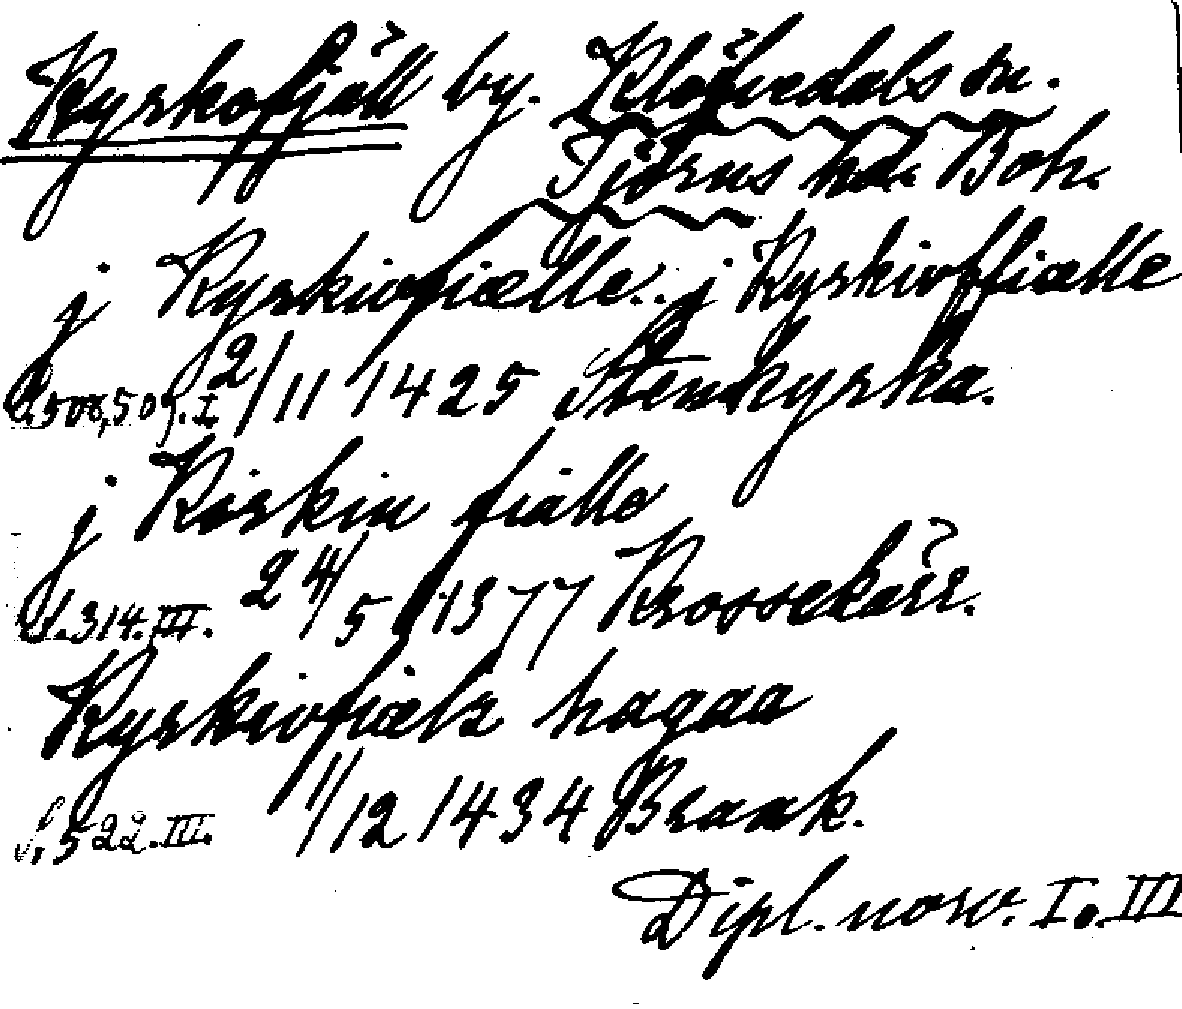 Kyrkofjäll by. Klöfvedals sn.
Tjörns hd. Boh.
j Kyrkiofiælle.. j Kyrkioffiælle
S. 508, 509. I. 2/11 1425 Stenkyrka.
j Kirkiu fiälle
S. 314. III. 24/5 1377 Krossekärr.
Kyrkiofiæls hagaa
S. 522. III. 1/12 1434 Braak.
Dipl. norv. I o. III